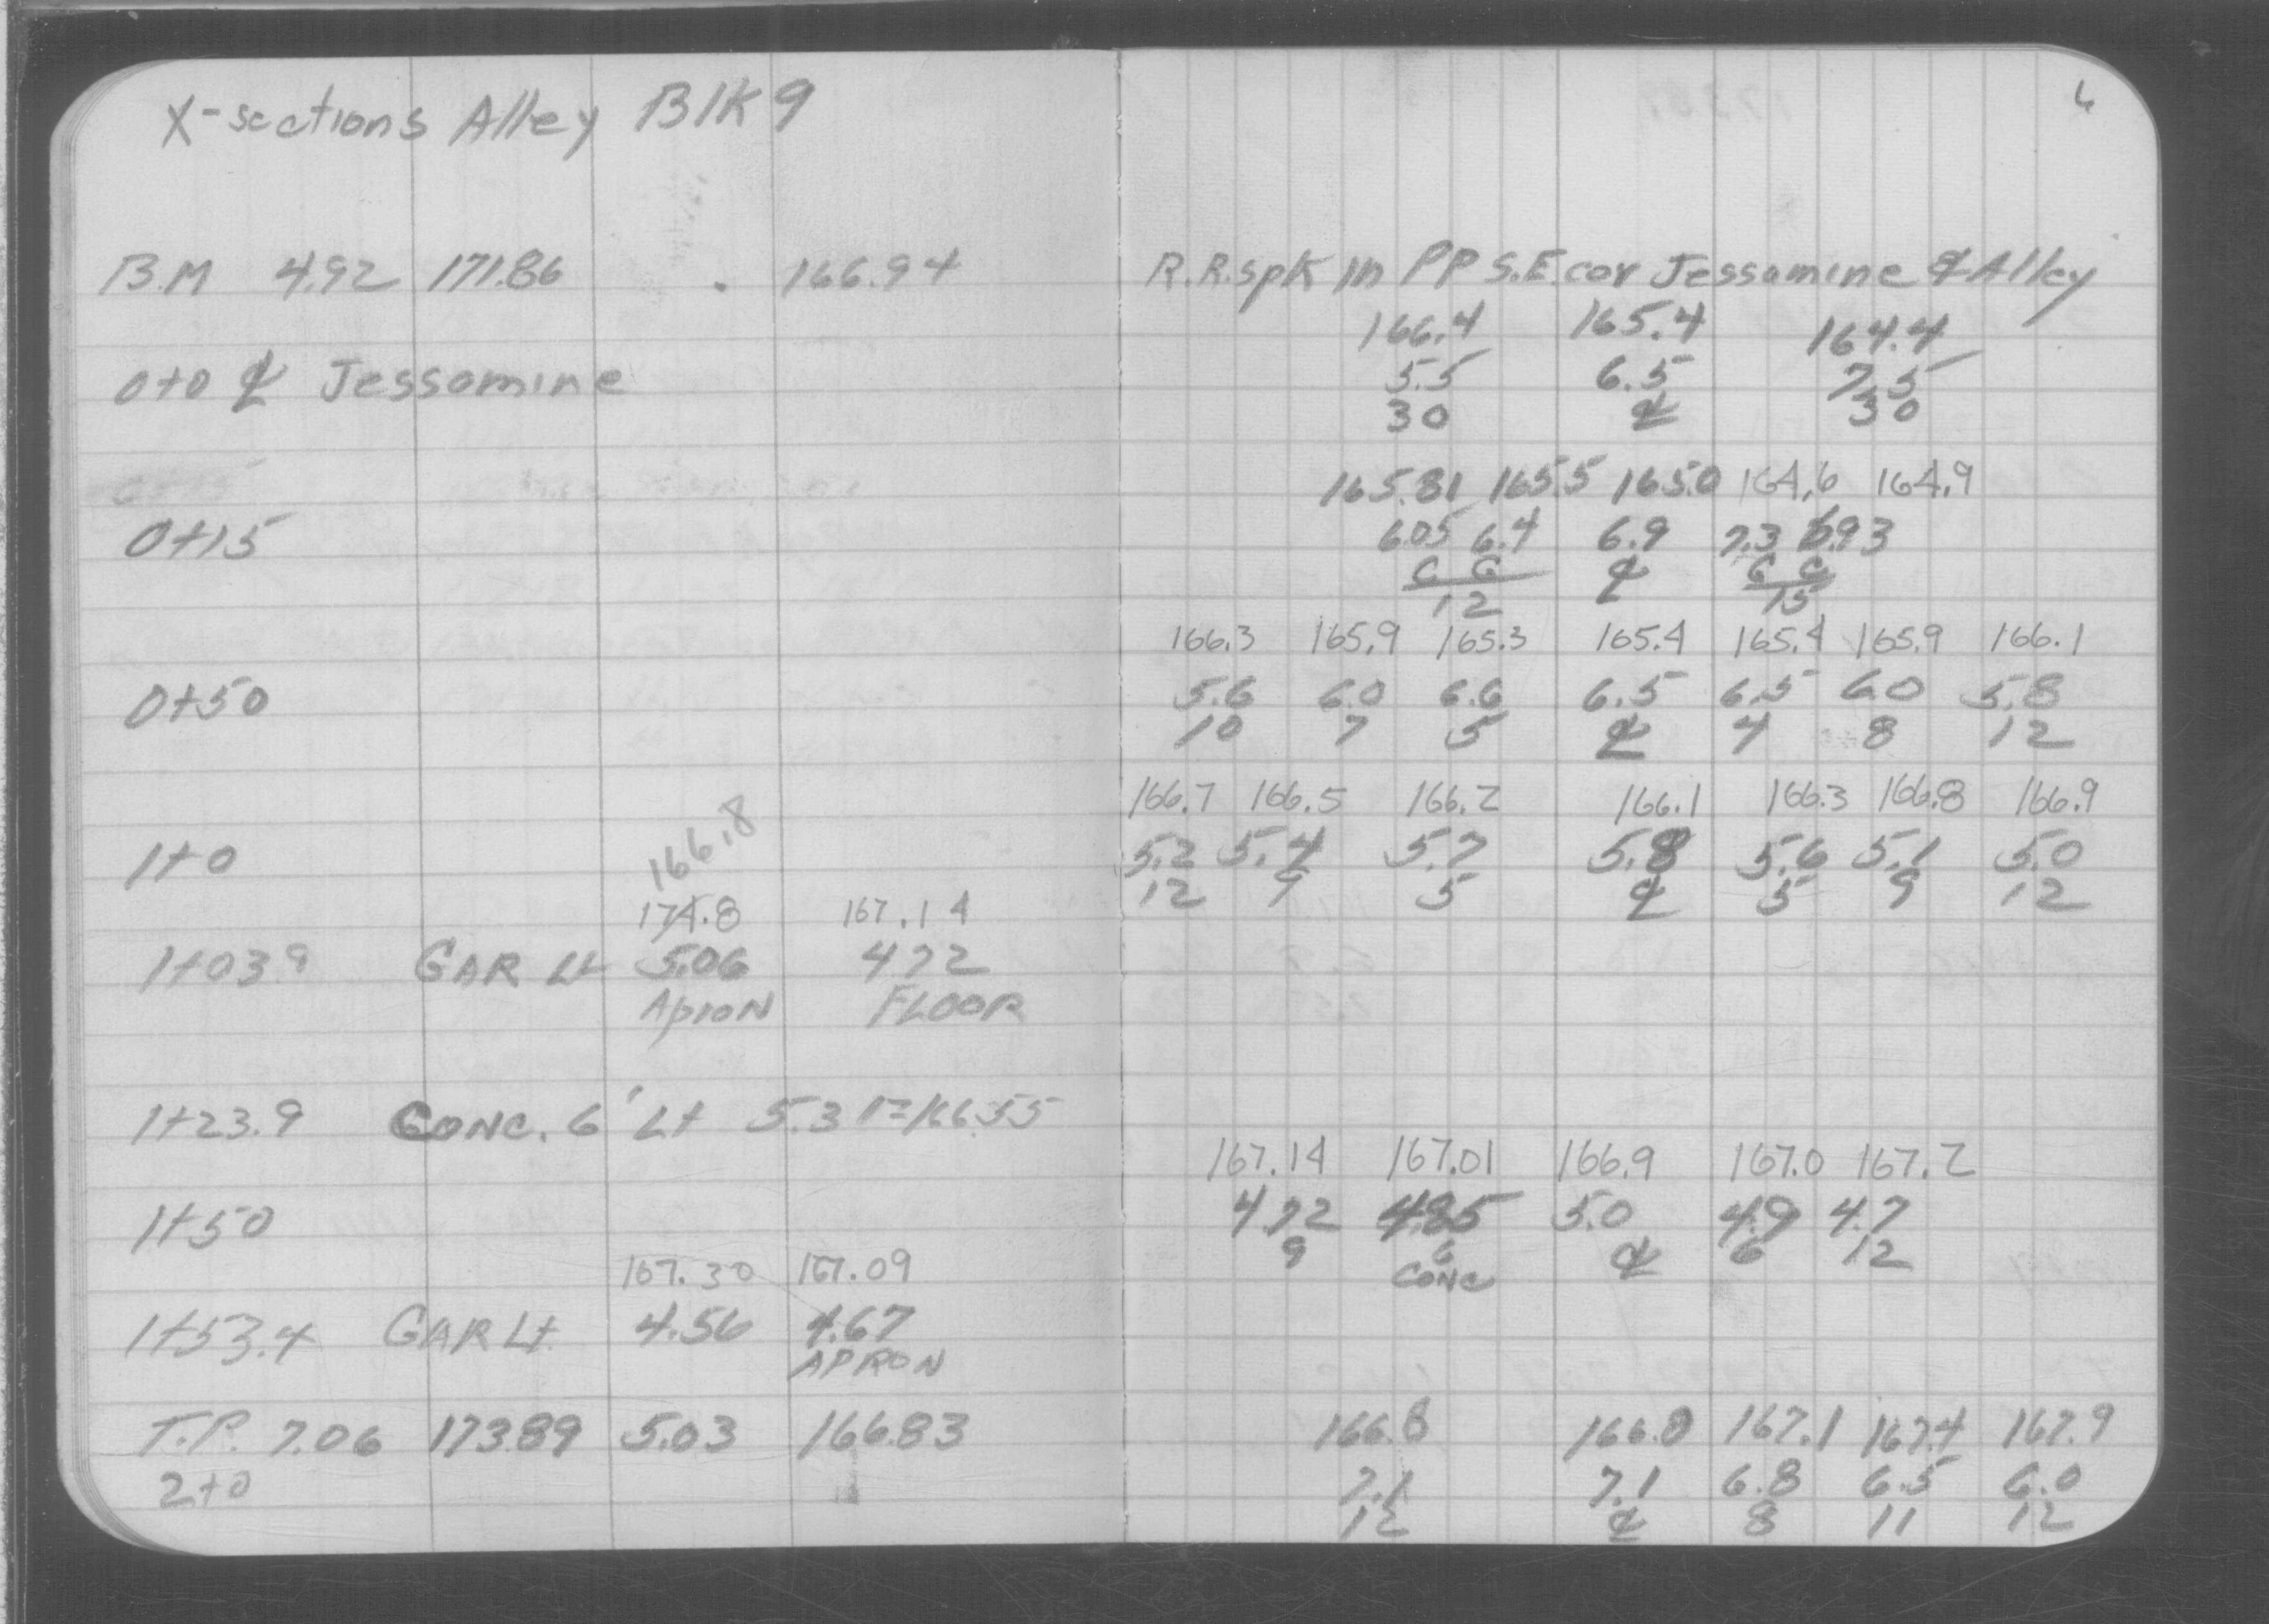 X-sections Alley Blk 9
B.M 4.92 171.86 166.94
0+0 ℄ Jessamine
0+15
0+50
166.8
1+0
174.8 167.14
1+03.9 GAR Lt 5.06 4.72
Apron FLOOR
1+23.9 CONC. 6' Lt 5.31=166.55
1+50
167.30 167.09
1+53.4 GAR Lt. 4.56 4.67
APRON
T.P. 7.06 173.89 5.03 166.83
2+0
R.R. spk in PP S.E. cor Jessamine & Alley
166.4 165.4 164.4
5.5 6.5 7.5
30 ℄ 30
165.81 165.5 165.0 164.6 164.9
6.05 6.4 6.9 7.3 6.93
C G ℄ G C
12 15
166.3 165.9 165.3 165.4 165.4 165.9 166.1
5.6 6.0 6.6 6.5 6.5 6.0 5.8
10 7 5 ℄ 4 8 12
166.7 166.5 166.2 166.1 166.3 166.8 166.9
5.2 5.4 5.7 5.8 5.6 5.1 5.0
12 9 5 ℄ 5 9 12
167.14 167.01 166.9 167.0 167.2
4.72 4.85 5.0 4.9 4.7
9 6 ℄ 6 12
CONC
166.8 166.8 167.1 167.4 167.9
7.1 7.1 6.8 6.5 6.0
12 ℄ 8 11 12